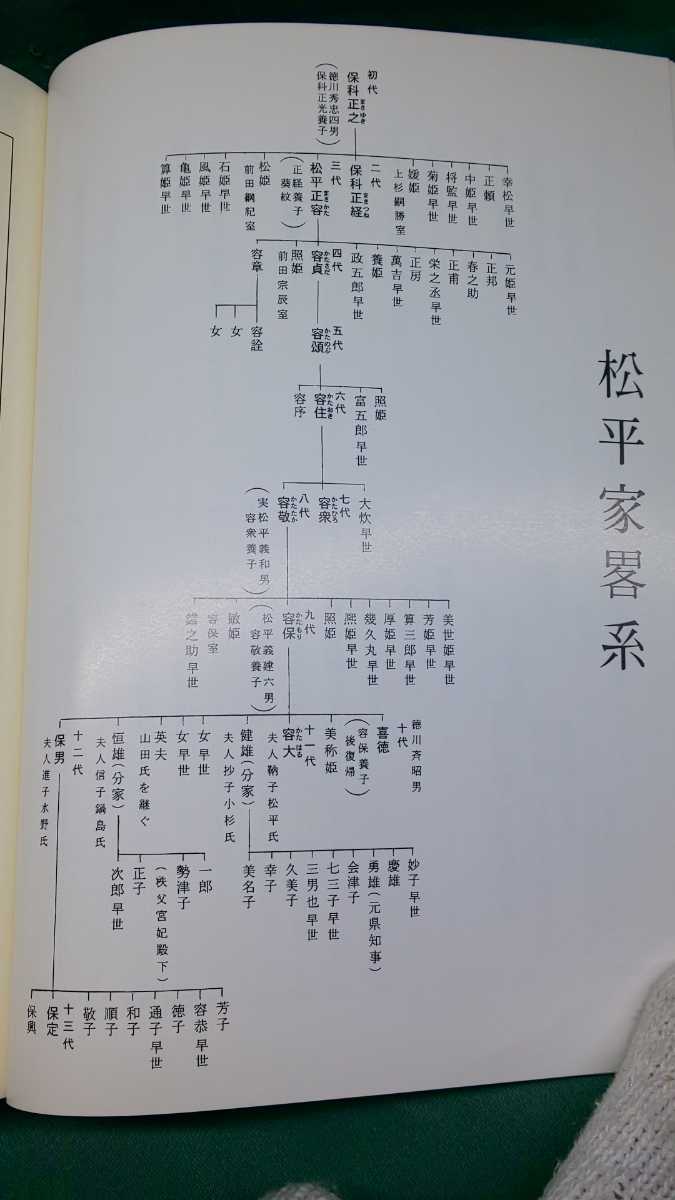 松平家畧系
初代
保科正之
まさゆき
(徳川秀忠四男
保科正光養子)
幸松早世
正頼
中姫早世
将監早世
菊姫早世
媛姫
上杉綱勝室
二代
保科正経
まさつね
三代
松平正容
まさかた
(正経養子
葵紋)
松姫
前田綱紀室
石姫早世
風姫早世
亀姫早世
算姫早世
元姫早世
正邦
春之助
正甫
栄之丞早世
正房
萬吉早世
養姫
政五郎早世
四代
容貞
かたさだ
照姫
前田宗辰室
容章
五代
容頌
かたのぶ
容詮
女
女
照姫
富五郎早世
六代
容住
かたおき
容序
大炊早世
七代
容衆
かたひろ
八代
容敬
かたたか
(実松平義和男
容衆養子)
美世姫早世
芳姫早世
算三郎早世
厚姫早世
幾久丸早世
熈姫早世
照姫
九代
容保
かたもり
(松平義建六男
容敬養子)
敏姫
容保室
鐈之助早世
徳川斉昭男
十代
喜徳
(容保養子
後復帰)
美称姫
十一代
容大
かたはる
夫人鞆子松平氏
健雄(分家)
夫人抄子小杉氏
女早世
女早世
英夫
山田氏を継ぐ
恒雄(分家)
夫人信子鍋島氏
十二代
保男
夫人進子水野氏
妙子早世
慶雄
勇雄(元県知事)
会津子
七三子早世
三男也早世
久美子
幸子
美名子
一郎
勢津子
(秩父宮妃殿下)
正子
次郎早世
芳子
容恭早世
徳子
通子早世
和子
順子
敬子
十三代
保定
保興